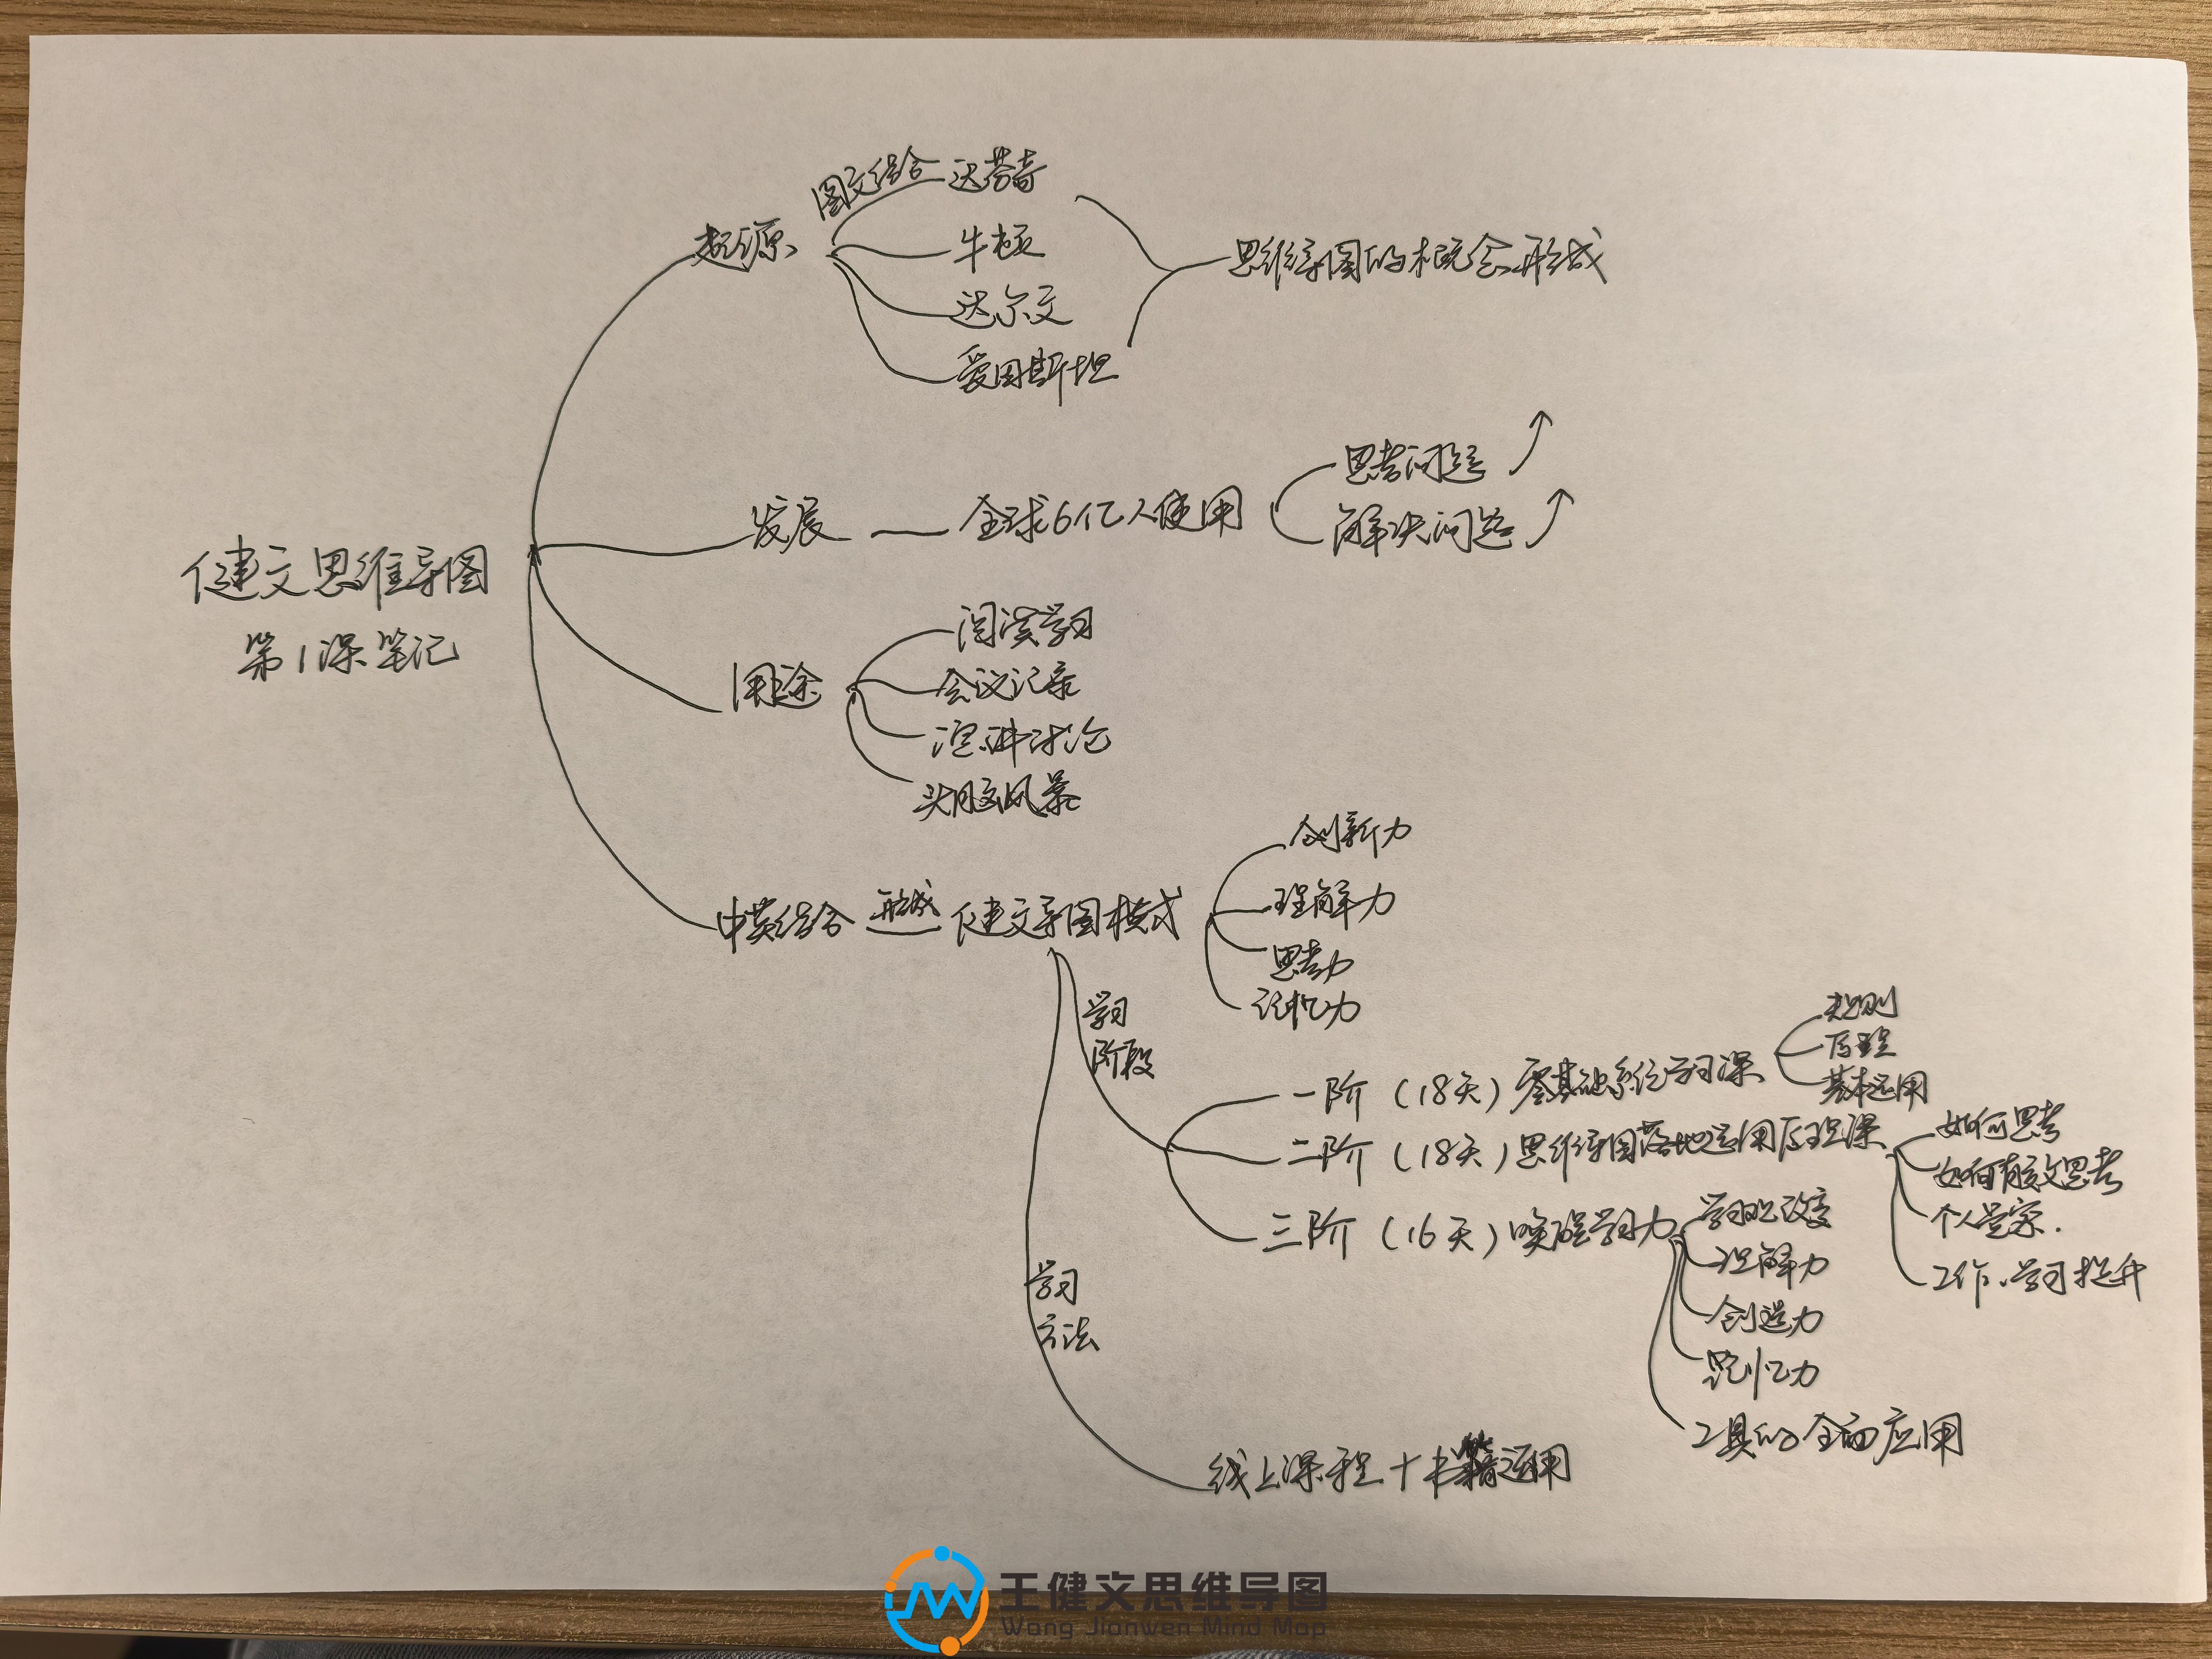 图文结合 达芬奇
起源
牛顿
达尔文
爱因斯坦
思维导图的概念形成
发展 — 全球6亿人使用
思考问题 ↑
解决问题 ↑
健文思维导图
第1课笔记
用途
阅读学习
会议记录
演讲讨论
头脑风暴
中英结合 形成 健文导图模式
创新力
理解力
思考力
记忆力
学习
阶段
一阶（18天）零基础系统学习课
规则
原理
基本运用
二阶（18天）思维导图落地运用原理课
如何思考
如何有效思考
个人管家.
工作、学习提升
三阶（16天）唤醒学习力
学习观改变
理解力
创造力
记忆力
工具的全面应用
学习
方法
线上课程+书籍运用
王健文思维导图
Wang Jianwen Mind Map